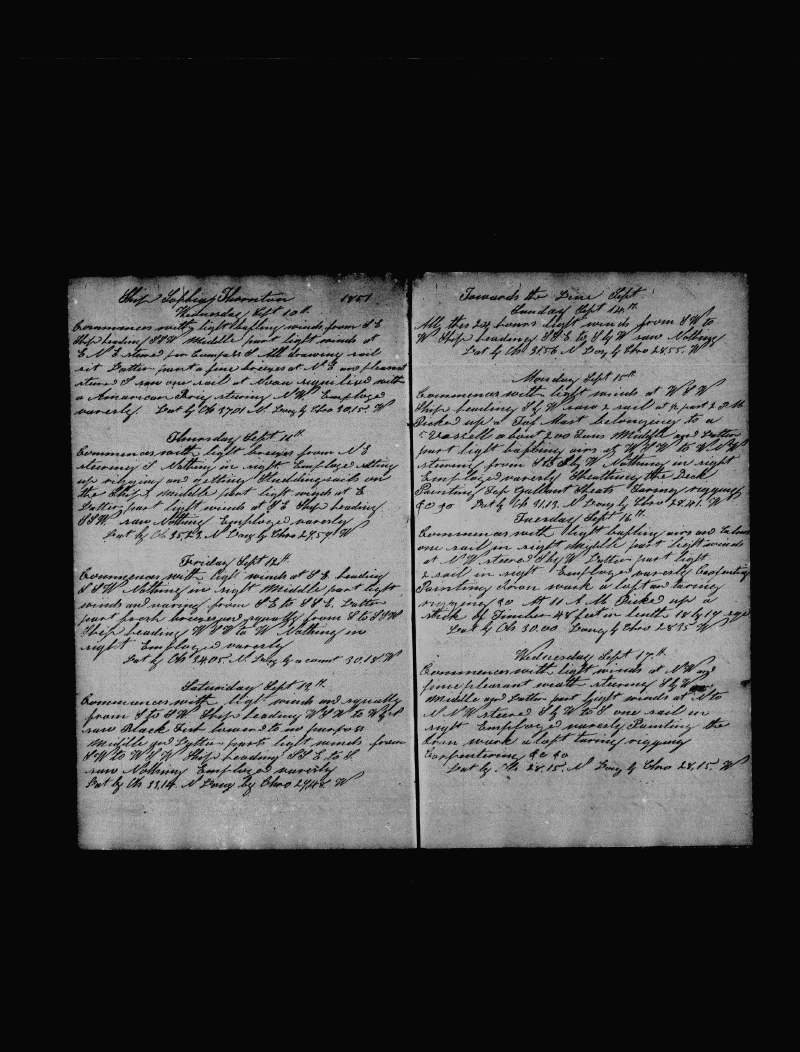 Ship Sophia Thornton 1851
Wednesday Sept 10th
Commences with light bafling winds from S E
Ship heading S S W Middle part light winds at
E N E steered per Compass S All drawing sail
sit Latter part a fine breeze at N E and pleasant
steered S saw one sail at Noon signalised with
a American Brig stering N W Employed
varerly Lat by Ob 37.01 N Long by Chro 30.15 W
Thursday Sept 11th
Commences with light breezes from N E
steering S Nothing in sight Employed sitting
up rigging and getting Studdingsails on
the Ship Middle part light winds at E
Latter part light winds at S E Ship heading
S S W saw Nothing Employed varerly
Lat by Ob 35.23 N Long by Chro 29.59 W
Friday Sept 12th
Commences with ligh winds at S E heading
S S W Nothing in sight Middle part light
winds and varing from S E to S S E Latter
part fresh breezes and squally from S to S S W
Ship heading W S W to W Nothing in
sight Employed varerly
Lat by Ob 34.05 N Long by acount 30.18 W
Saturday Sept 13th
Commences with ligh winds and squally
from S to S W Ship heading W S W to W by S
saw Black Fish lowerd to no purpose
Middle and Latter parts light winds from
S W to W S W Ship heading S S E to S
saw Nothing Employed varerly
Lat by Ob 33.14 N Long by Chro 29.48 W
Towards the Line Sept
Sunday Sept 14th
All this 24 hours light winds from S W to
W Ship heading S S E to S by W saw Nothing
Lat by Ob 31.56 N Long by Chro 28.55 W
Monday Sept 15th
Commences with light winds at W S W
Ship heading S by W saw 2 sail at 2 part 2 P M
Picked up a Top Mast belongeing to a
Vessell about 200 tuns Middle and Latter
part light bafling airs at W S W to W N W
stering from S to S by W Nothing in sight
Employed varerly Sheathing the Deck
Painting Top Gallant Sheats Taring rigging
&c &c Lat by Ob 31.13 N Long by Chro 28.41 W
Tuesday Sept 16th
Commences with light bafling airs and Calms
one sail in sight Middle part light winds
at N W steered S by W Latter part light
2 sail in sight Employed varerly Carpentering
Painting Iron work a loft and taring
rigging &c At 11 A M Picked up a
stick of Timber 48 feet in length 18 by 14 sqr
Lat by Ob 30.00 Long by Chro 28.35 W
Wednesday Sept 17th
Commences with light winds at N W and
fine pleasant weath stering S by W
Middle and Latter part light winds at N to
N N W steered S by W to S one sail in
sight Employed varerly Painting the
Iron work a loft taring rigging
Carpentering &c &c
Lat by Ob 28.15 N Long by Chro 28.15 W